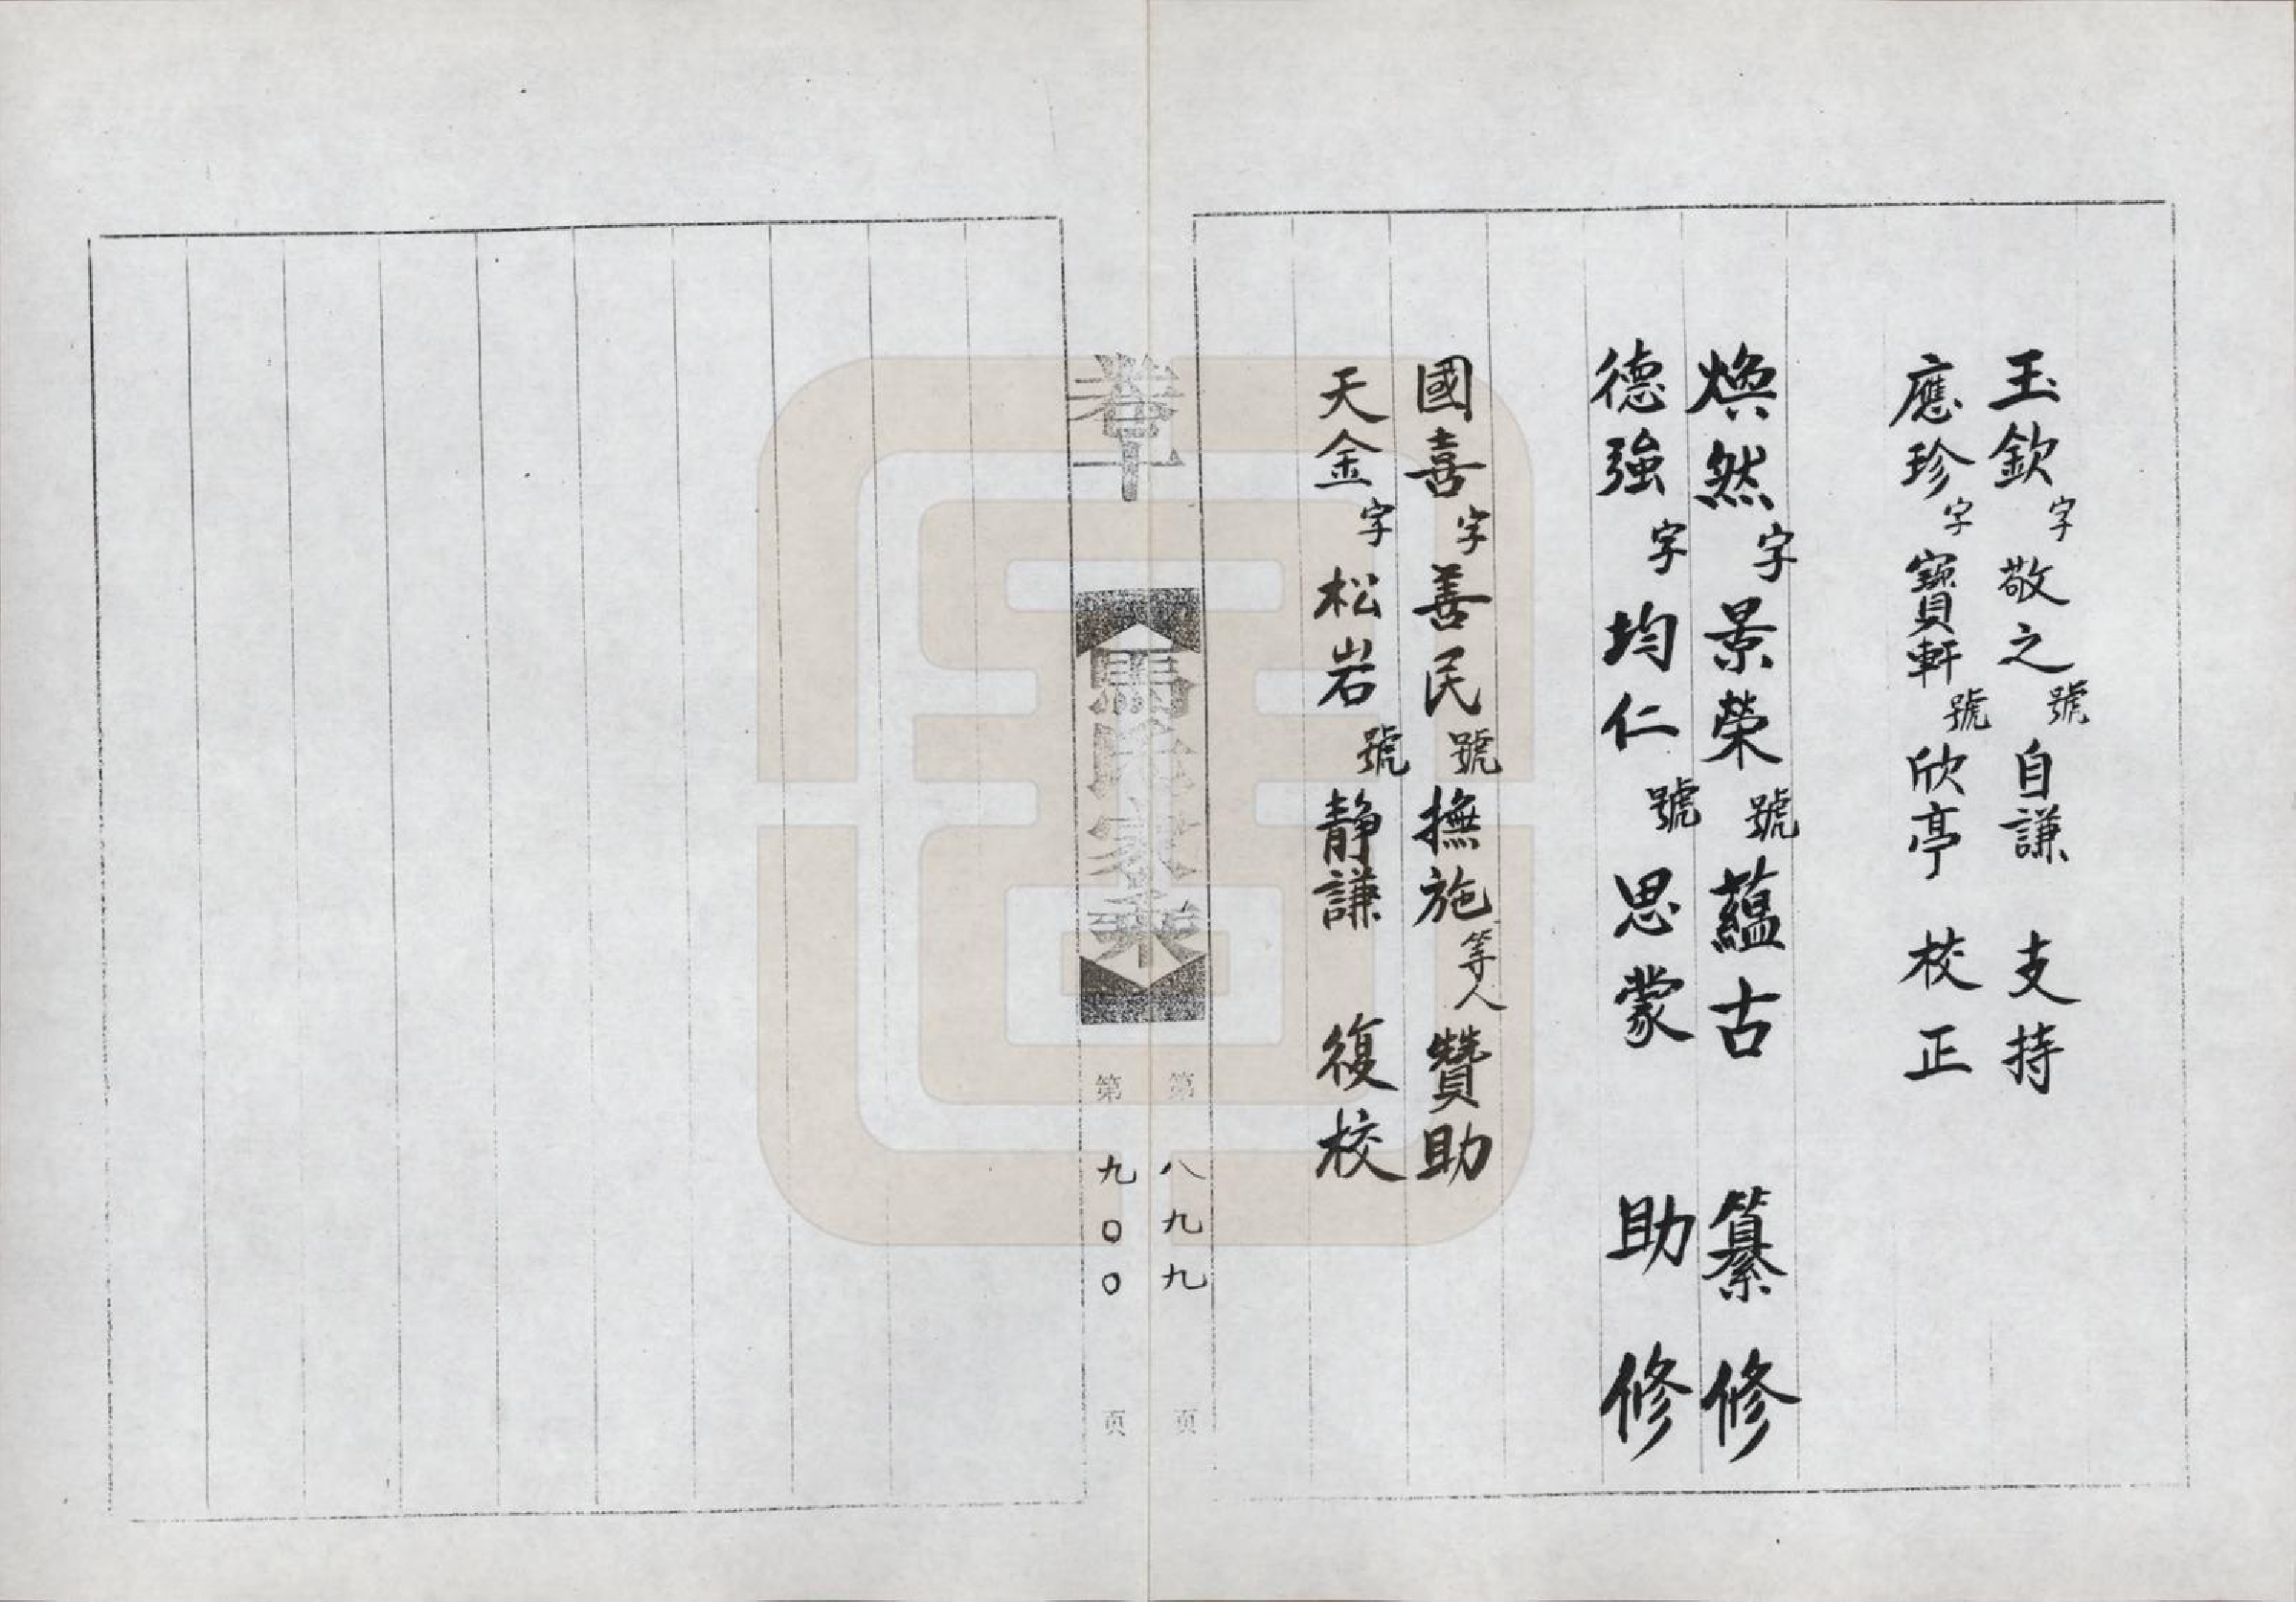 玉欽字敬之號自謙 支持
應珍字寶軒號欣亭 校正
煥然字景榮號蘊古 纂修
德強字均仁號思蒙 助修
國喜字善民號撫施等人 贊助
天金字松岩號靜謙 復校
馬氏家乘
第八九九页
第九00页